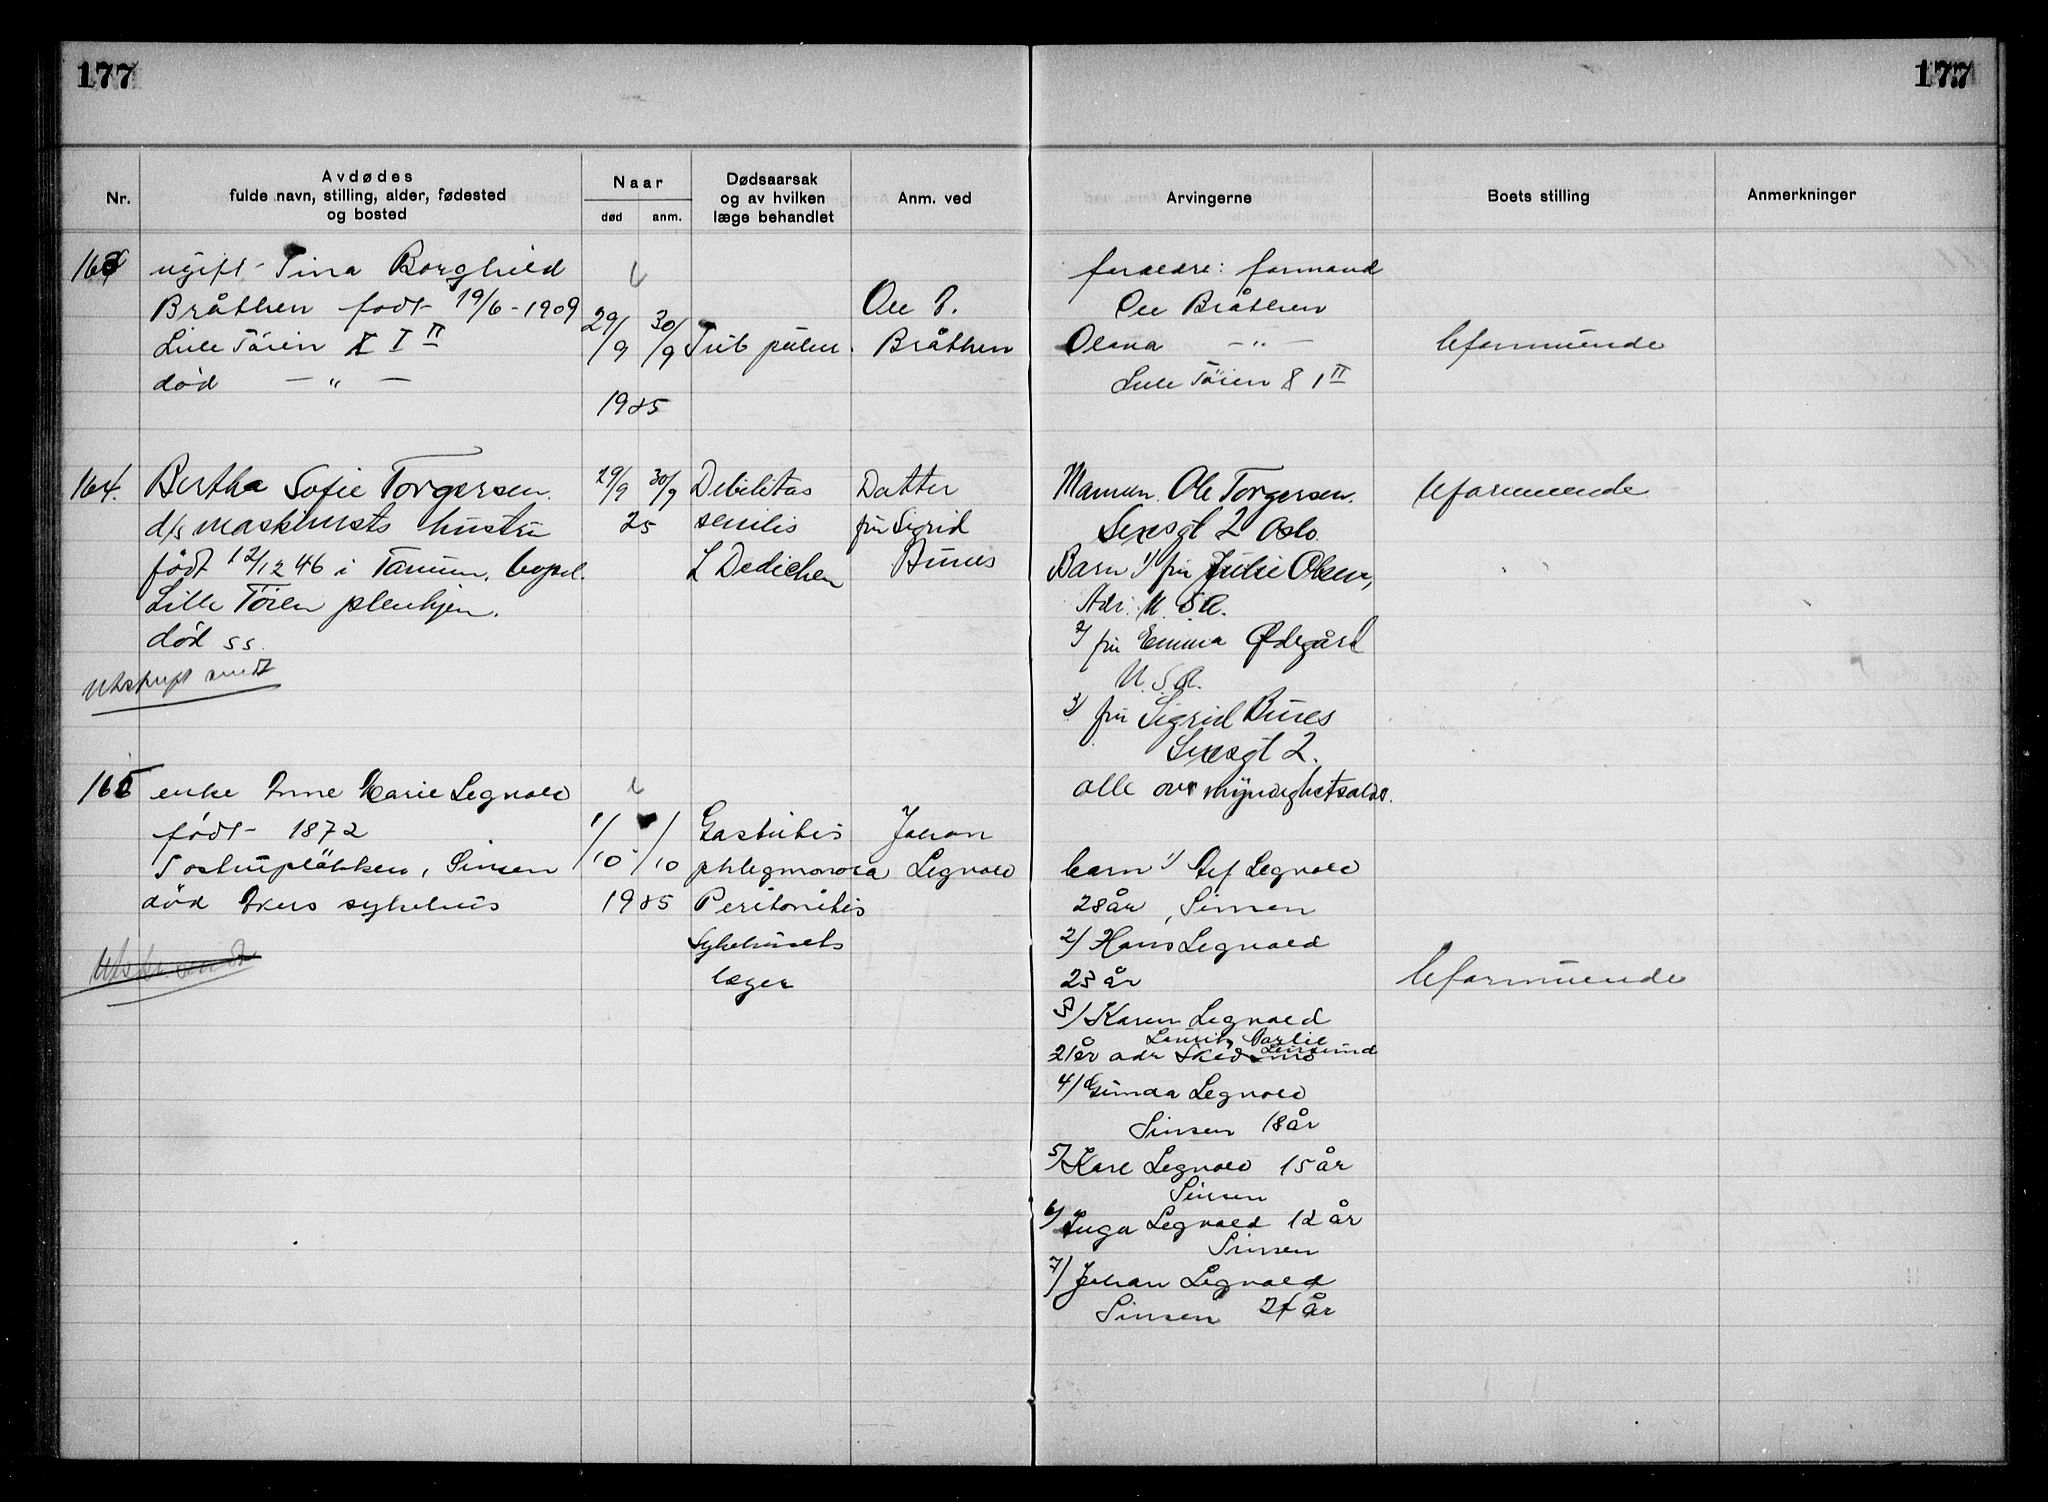 177
177
Nr.
Avdødes
fulde navn, stilling, alder, fødested
og bosted
Naar
død
anm.
Dødsaarsak
og av hvilken
læge behandlet
Anm. ved
Arvingerne
Boets stilling
Anmerkninger
163
ugift Tina Borghild
Bråthen født 19/6-1909
Lille Tøien X I II
død — " —
29/9
30/9
1925
Tub pulm.
Ole P.
Bråthen
foreldre: formand
Ole Bråthen
Olava — " —
Lille Tøien 8 1 II
Uformuende
164.
Bertha Sofie Torgersen.
d/s maskinists hustru
født 12/12 46 i Tanum, bopel.
Lille Tøien pleiehjem.
død ss.
Utskrift sendt
29/9
30/9
25
Debilitas
senilis
L Dedichen
Datter
fru Sigrid
Bunes
Mannen. Ole Torgersen.
Sexesgt 2 Oslo.
Barn 1/ fru Julie Olsen,
Adr. U.S.A.
2/ fru Emma Ødegård
U.S.A.
3/ fru Sigrid Bunes
Sexesgt 2.
alle over myndighetsalder.
Uformuende
165
enke Anne Marie Legvold
født 1872
Tostrupløkken, Sinsen
død Akers sykehus
Utskr. sendt
1/10
1/10
1925
Gastritis
phlegmonosa
Peritonitis
Sykehusets
læger
Johan
Legvold
barn 1/ Legvold
28 år, Sinsen
2/ Hans Legvold
23 år
3/ Karen Legvold
21 år adr Skedsmo
4/ Gunda Legvold
Sinsen 18 år
5/ Karl Legvold 15 år
Sinsen
6/ Inga Legvold 12 år
Sinsen
7/ Johan Legvold
Sinsen 24 år
Uformuende